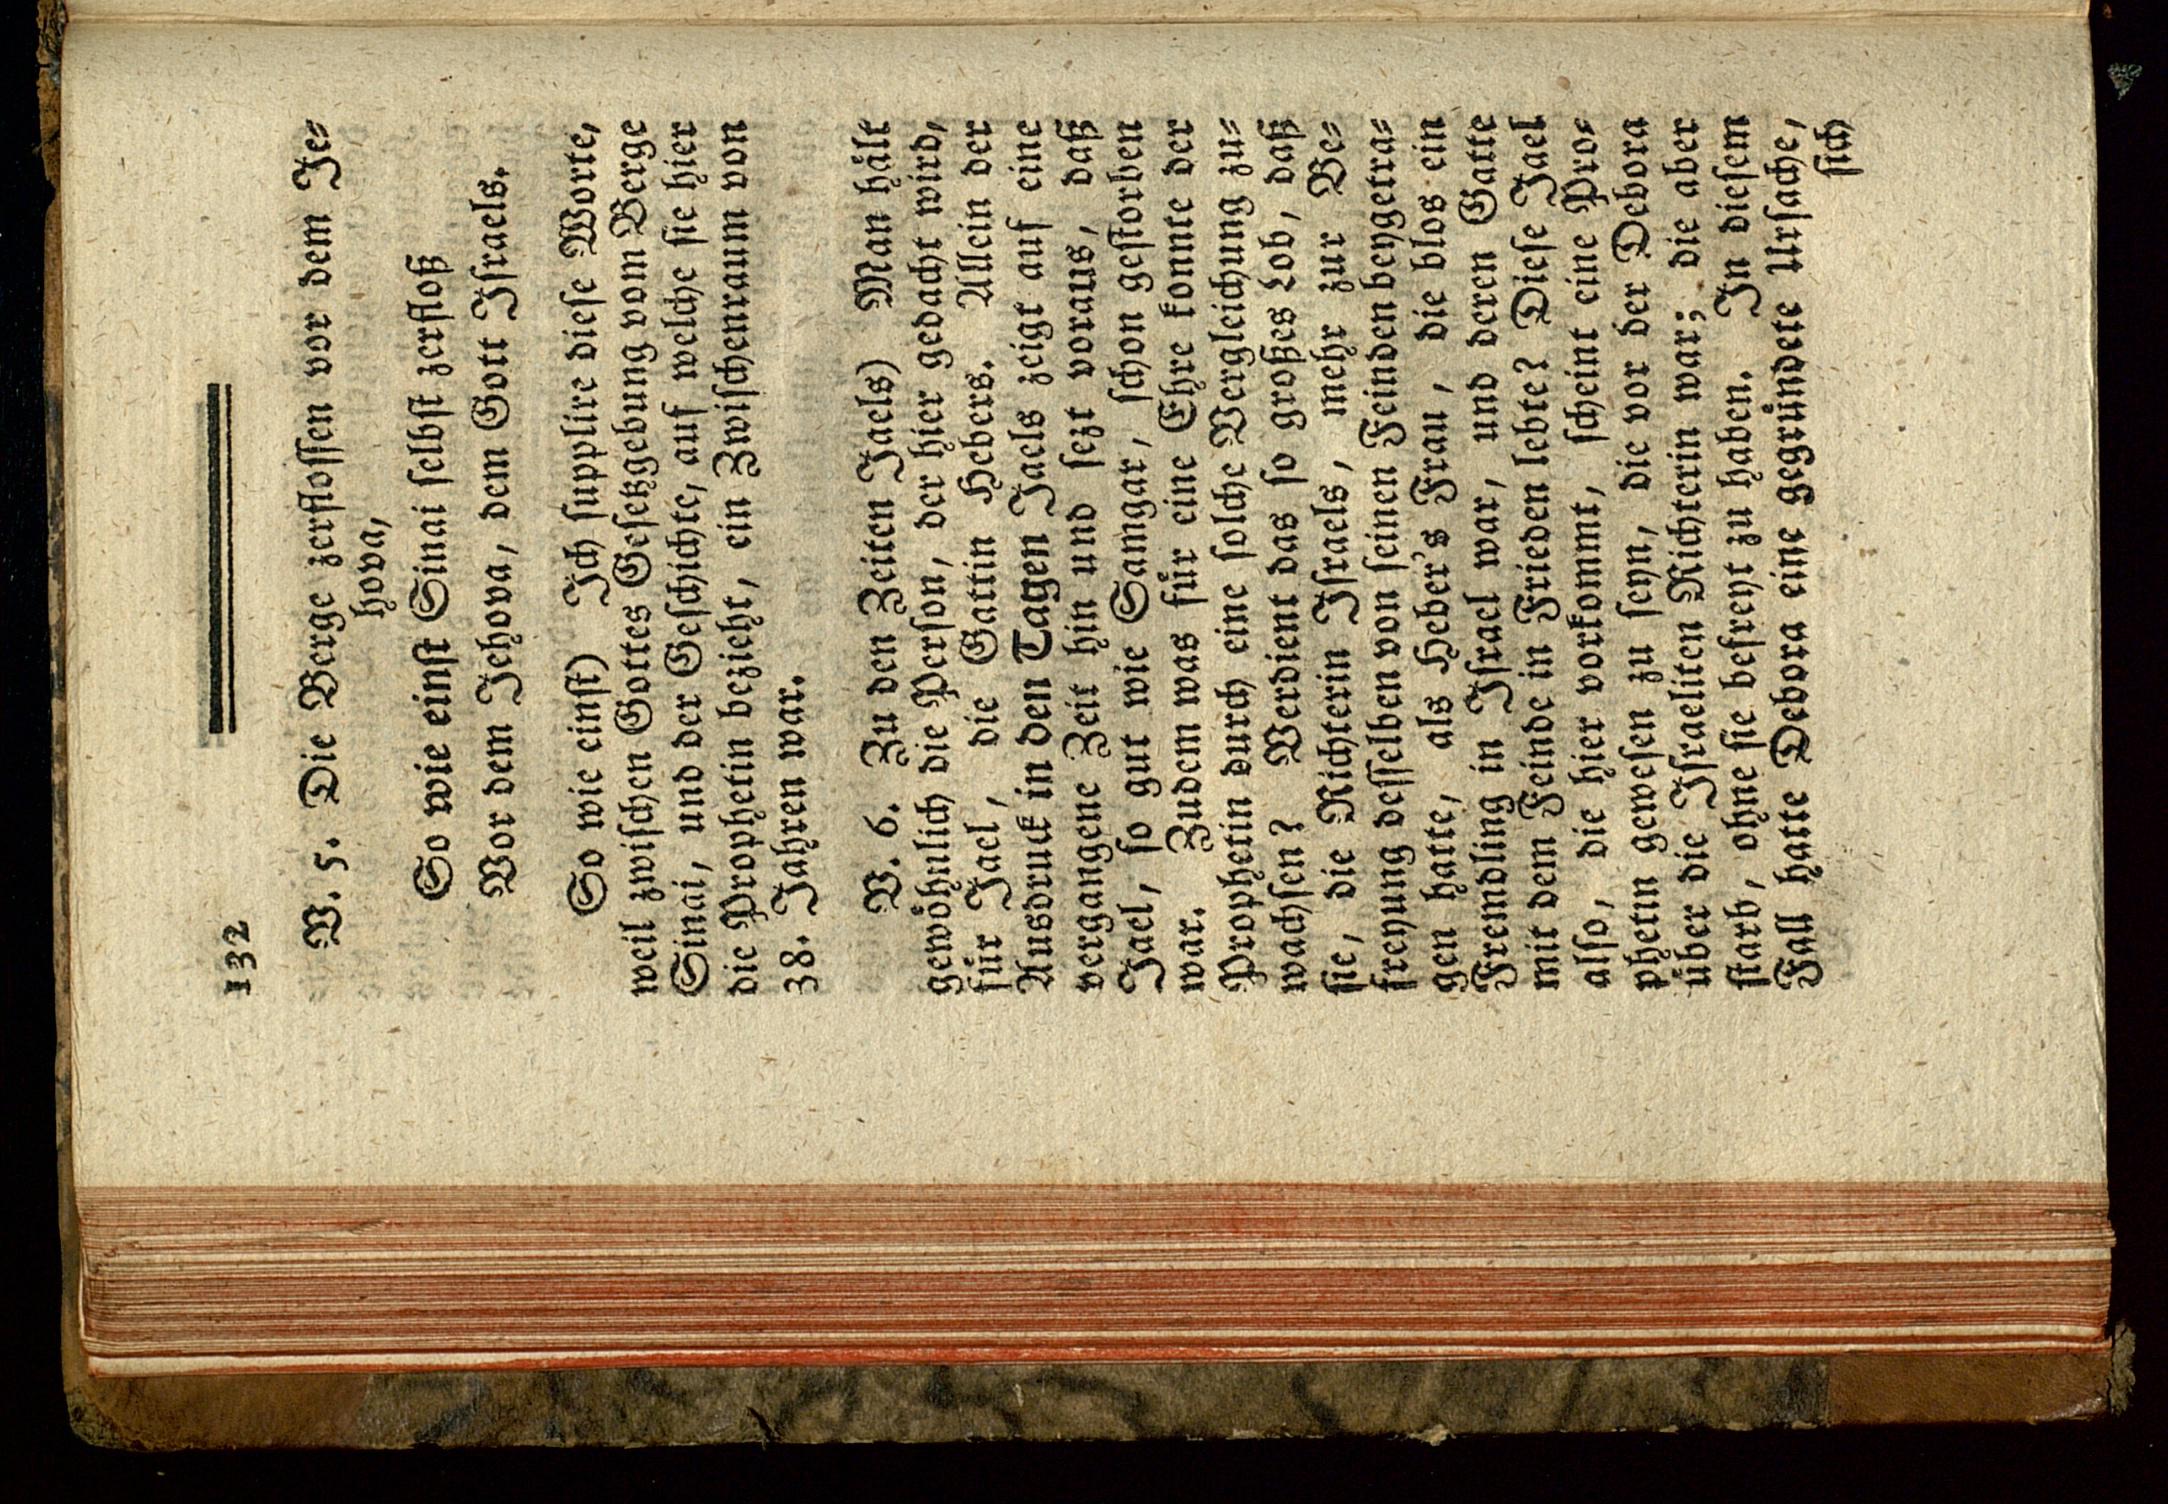 132
V. 5. Die Berge zerflossen vor dem Je⸗
hova,
So wie einst Sinai selbst zerfloß
Vor dem Jehova, dem Gott Israels.
So wie einst) Ich supplire diese Worte,
weil zwischen Gottes Gesetzgebung vom Berge
Sinai, und der Geschichte, auf welche sie hier
die Prophetin bezieht, ein Zwischenraum von
38. Jahren war.
V. 6. Zu den Zeiten Jaels) Man hält
gewöhnlich die Person, der hier gedacht wird,
für Jael, die Gattin Hebers. Allein der
Ausdruck in den Tagen Jaels zeigt auf eine
vergangene Zeit hin und sezt voraus, daß
Jael, so gut wie Samgar, schon gestorben
war. Zudem was für eine Ehre konnte der
Prophetin durch eine solche Vergleichung zu⸗
wachsen? Verdient das so großes Lob, daß
sie, die Richterin Israels, mehr zur Be⸗
freyung desselben von seinen Feinden beygetra⸗
gen hatte, als Heber's Frau, die blos ein
Fremdling in Israel war, und deren Gatte
mit dem Feinde in Frieden lebte? Diese Jael
also, die hier vorkommt, scheint eine Pro⸗
phetin gewesen zu seyn, die vor der Debora
über die Israeliten Richterin war; die aber
starb, ohne sie befreyt zu haben. In diesem
Fall hatte Debora eine gegründete Ursache,
sich